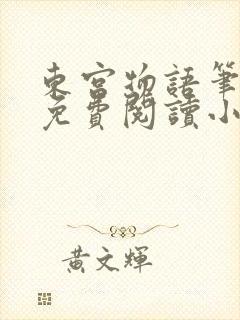 東宮物語筆
免費閱讀小
黃文輝